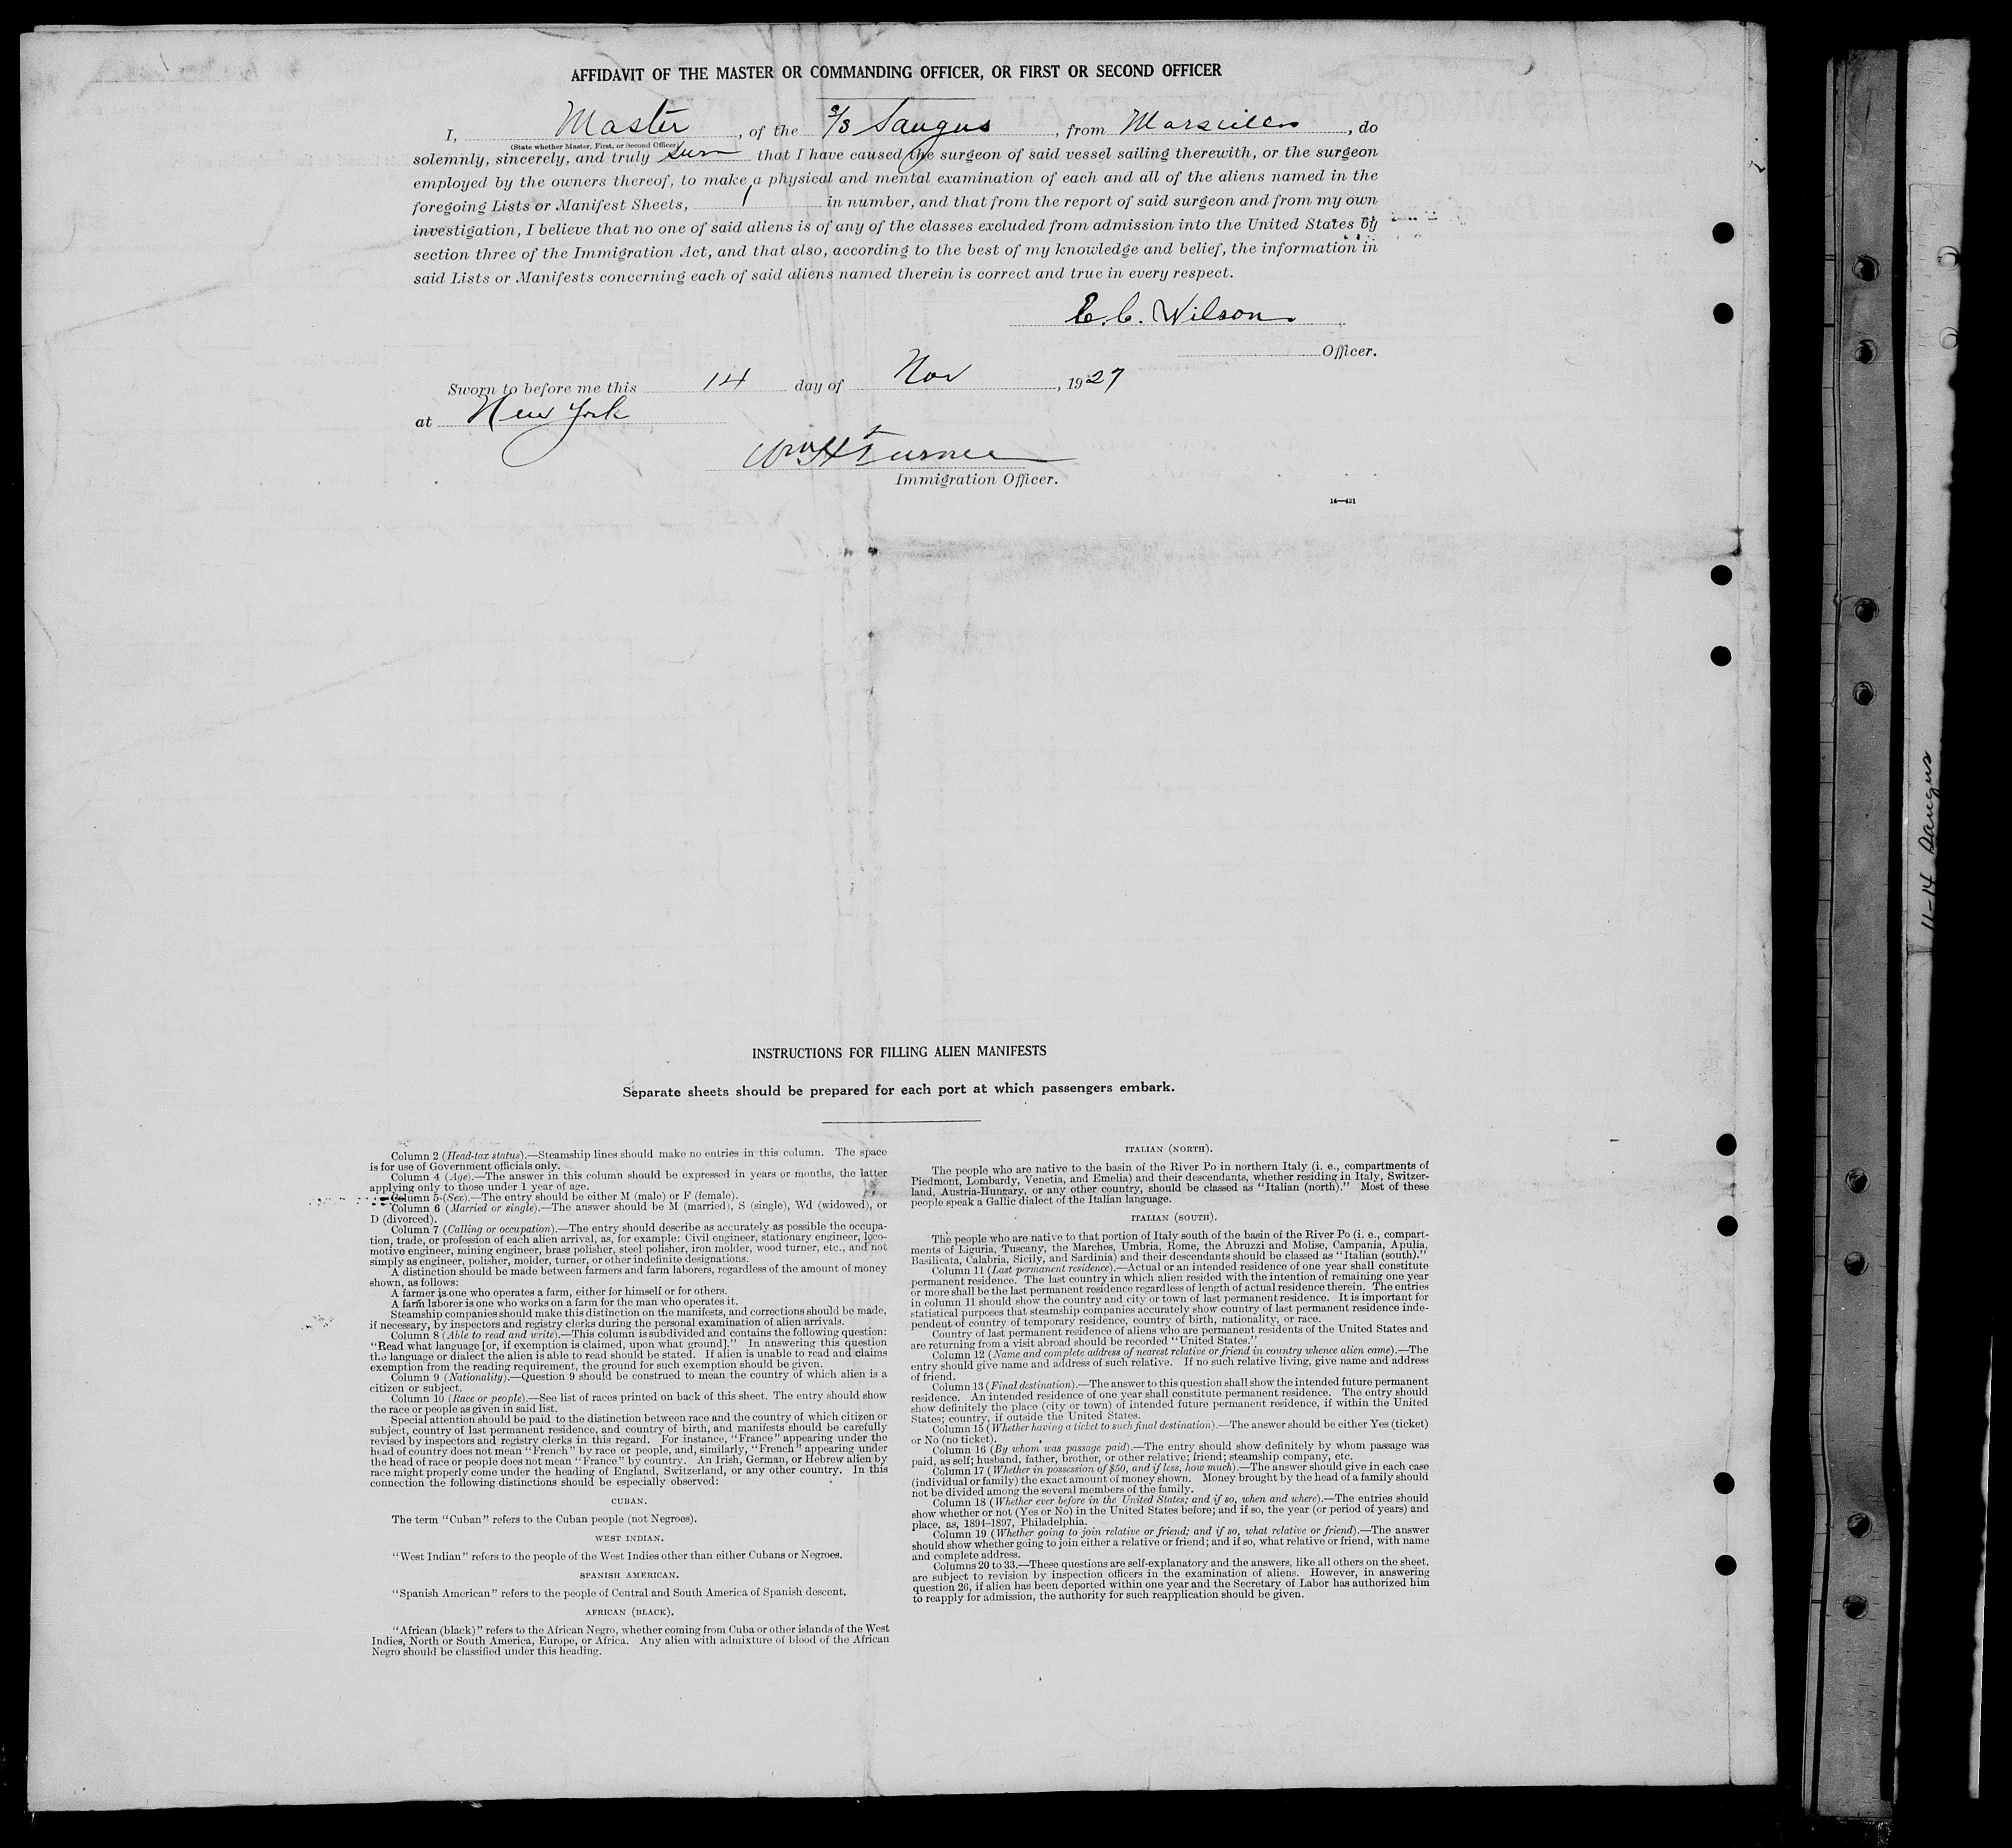 AFFIDAVIT OF THE MASTER OR COMMANDING OFFICER, OR FIRST OR SECOND OFFICER
I, Master, of the S/S Saugus, from Marseilles, do
(State whether Master, First, or Second Officer)
solemnly, sincerely, and truly that I have caused the surgeon of said vessel sailing therewith, or the surgeon
employed by the owners thereof, to make a physical and mental examination of each and all of the aliens named in the
foregoing Lists or Manifest Sheets, 1 in number, and that from the report of said surgeon and from my own
investigation, I believe that no one of said aliens is of any of the classes excluded from admission into the United States by
section three of the Immigration Act, and that also, according to the best of my knowledge and belief, the information in
said Lists or Manifests concerning each of said aliens named therein is correct and true in every respect.
E. C. Wilson
Officer.
Sworn to before me this 14 day of Nov, 1927
at New York
Wm H Turner
Immigration Officer.
14—431
INSTRUCTIONS FOR FILLING ALIEN MANIFESTS
Separate sheets should be prepared for each port at which passengers embark.
Column 2 (Head-tax status).—Steamship lines should make no entries in this column. The space
is for use of Government officials only.
Column 4 (Age).—The answer in this column should be expressed in years or months, the latter
applying only to those under 1 year of age.
Column 5 (Sex).—The entry should be either M (male) or F (female).
Column 6 (Married or single).—The answer should be M (married), S (single), Wd (widowed), or
D (divorced).
Column 7 (Calling or occupation).—The entry should describe as accurately as possible the occupa-
tion, trade, or profession of each alien arrival, as, for example: Civil engineer, stationary engineer, loco-
motive engineer, mining engineer, brass polisher, steel polisher, iron molder, wood turner, etc., and not
simply as engineer, polisher, molder, turner, or other indefinite designations.
A distinction should be made between farmers and farm laborers, regardless of the amount of money
shown, as follows:
A farmer is one who operates a farm, either for himself or for others.
A farm laborer is one who works on a farm for the man who operates it.
Steamship companies should make this distinction on the manifests, and corrections should be made,
if necessary, by inspectors and registry clerks during the personal examination of alien arrivals.
Column 8 (Able to read and write).—This column is subdivided and contains the following question:
"Read what language [or, if exemption is claimed, upon what ground]." In answering this question
the language or dialect the alien is able to read should be stated. If alien is unable to read and claims
exemption from the reading requirement, the ground for such exemption should be given.
Column 9 (Nationality).—Question 9 should be construed to mean the country of which alien is a
citizen or subject.
Column 10 (Race or people).—See list of races printed on back of this sheet. The entry should show
the race or people as given in said list.
Special attention should be paid to the distinction between race and the country of which citizen or
subject, country of last permanent residence, and country of birth, and manifests should be carefully
revised by inspectors and registry clerks in this regard. For instance, "France" appearing under the
head of country does not mean "French" by race or people, and, similarly, "French" appearing under
the head of race or people does not mean "France" by country. An Irish, German, or Hebrew alien by
race might properly come under the heading of England, Switzerland, or any other country. In this
connection the following distinctions should be especially observed:
CUBAN.
The term "Cuban" refers to the Cuban people (not Negroes).
WEST INDIAN.
"West Indian" refers to the people of the West Indies other than either Cubans or Negroes.
SPANISH AMERICAN.
"Spanish American" refers to the people of Central and South America of Spanish descent.
AFRICAN (BLACK).
"African (black)" refers to the African Negro, whether coming from Cuba or other islands of the West
Indies, North or South America, Europe, or Africa. Any alien with admixture of blood of the African
Negro should be classified under this heading.
ITALIAN (NORTH).
The people who are native to the basin of the River Po in northern Italy (i. e., compartments of
Piedmont, Lombardy, Venetia, and Emelia) and their descendants, whether residing in Italy, Switzer-
land, Austria-Hungary, or any other country, should be classed as "Italian (north)." Most of these
people speak a Gallic dialect of the Italian language.
ITALIAN (SOUTH).
The people who are native to that portion of Italy south of the basin of the River Po (i. e., compart-
ments of Liguria, Tuscany, the Marches, Umbria, Rome, the Abruzzi and Molise, Campania, Apulia,
Basilicata, Calabria, Sicily, and Sardinia) and their descendants should be classed as "Italian (south)."
Column 11 (Last permanent residence).—Actual or an intended residence of one year shall constitute
permanent residence. The last country in which alien resided with the intention of remaining one year
or more shall be the last permanent residence regardless of length of actual residence therein. The entries
in column 11 should show the country and city or town of last permanent residence. It is important for
statistical purposes that steamship companies accurately show country of last permanent residence inde-
pendent of country of temporary residence, country of birth, nationality, or race.
Country of last permanent residence of aliens who are permanent residents of the United States and
are returning from a visit abroad should be recorded "United States."
Column 12 (Name and complete address of nearest relative or friend in country whence alien came).—The
entry should give name and address of such relative. If no such relative living, give name and address
of friend.
Column 13 (Final destination).—The answer to this question shall show the intended future permanent
residence. An intended residence of one year shall constitute permanent residence. The entry should
show definitely the place (city or town) of intended future permanent residence, if within the United
States; country, if outside the United States.
Column 15 (Whether having a ticket to such final destination).—The answer should be either Yes (ticket)
or No (no ticket).
Column 16 (By whom was passage paid).—The entry should show definitely by whom passage was
paid, as self; husband, father, brother, or other relative; friend; steamship company, etc.
Column 17 (Whether in possession of $50, and if less, how much).—The answer should give in each case
(individual or family) the exact amount of money shown. Money brought by the head of a family should
not be divided among the several members of the family.
Column 18 (Whether ever before in the United States; and if so, when and where).—The entries should
show whether or not (Yes or No) in the United States before; and if so, the year (or period of years) and
place, as, 1894-1897, Philadelphia.
Column 19 (Whether going to join relative or friend; and if so, what relative or friend).—The answer
should show whether going to join either a relative or friend; and if so, what relative or friend, with name
and complete address.
Columns 20 to 33.—These questions are self-explanatory and the answers, like all others on the sheet,
are subject to revision by inspection officers in the examination of aliens. However, in answering
question 26, if alien has been deported within one year and the Secretary of Labor has authorized him
to reapply for admission, the authority for such reapplication should be given.
11-14 Saugus